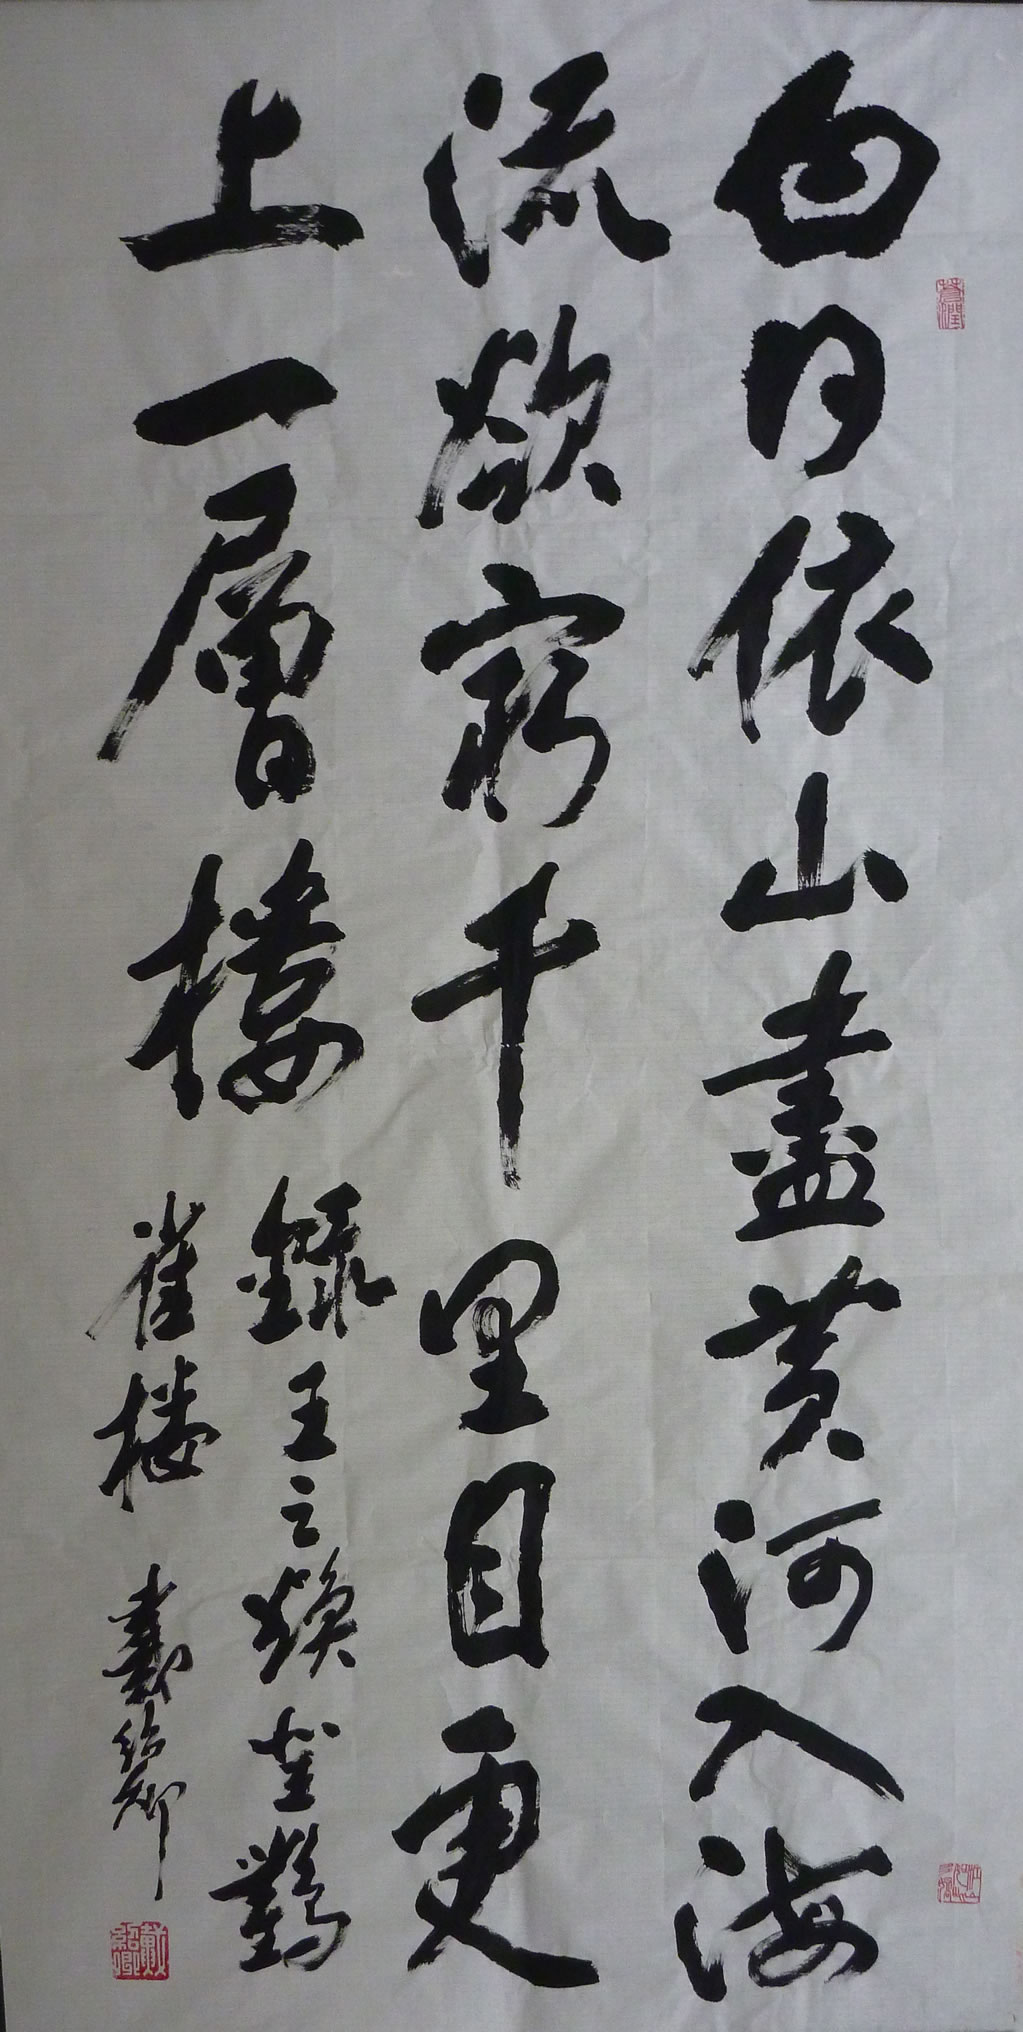 白日依山盡黄河入海
流欲窮千里目更
上一層樓
録王之煥登鸛
雀樓 戴紹卿
戴紹卿